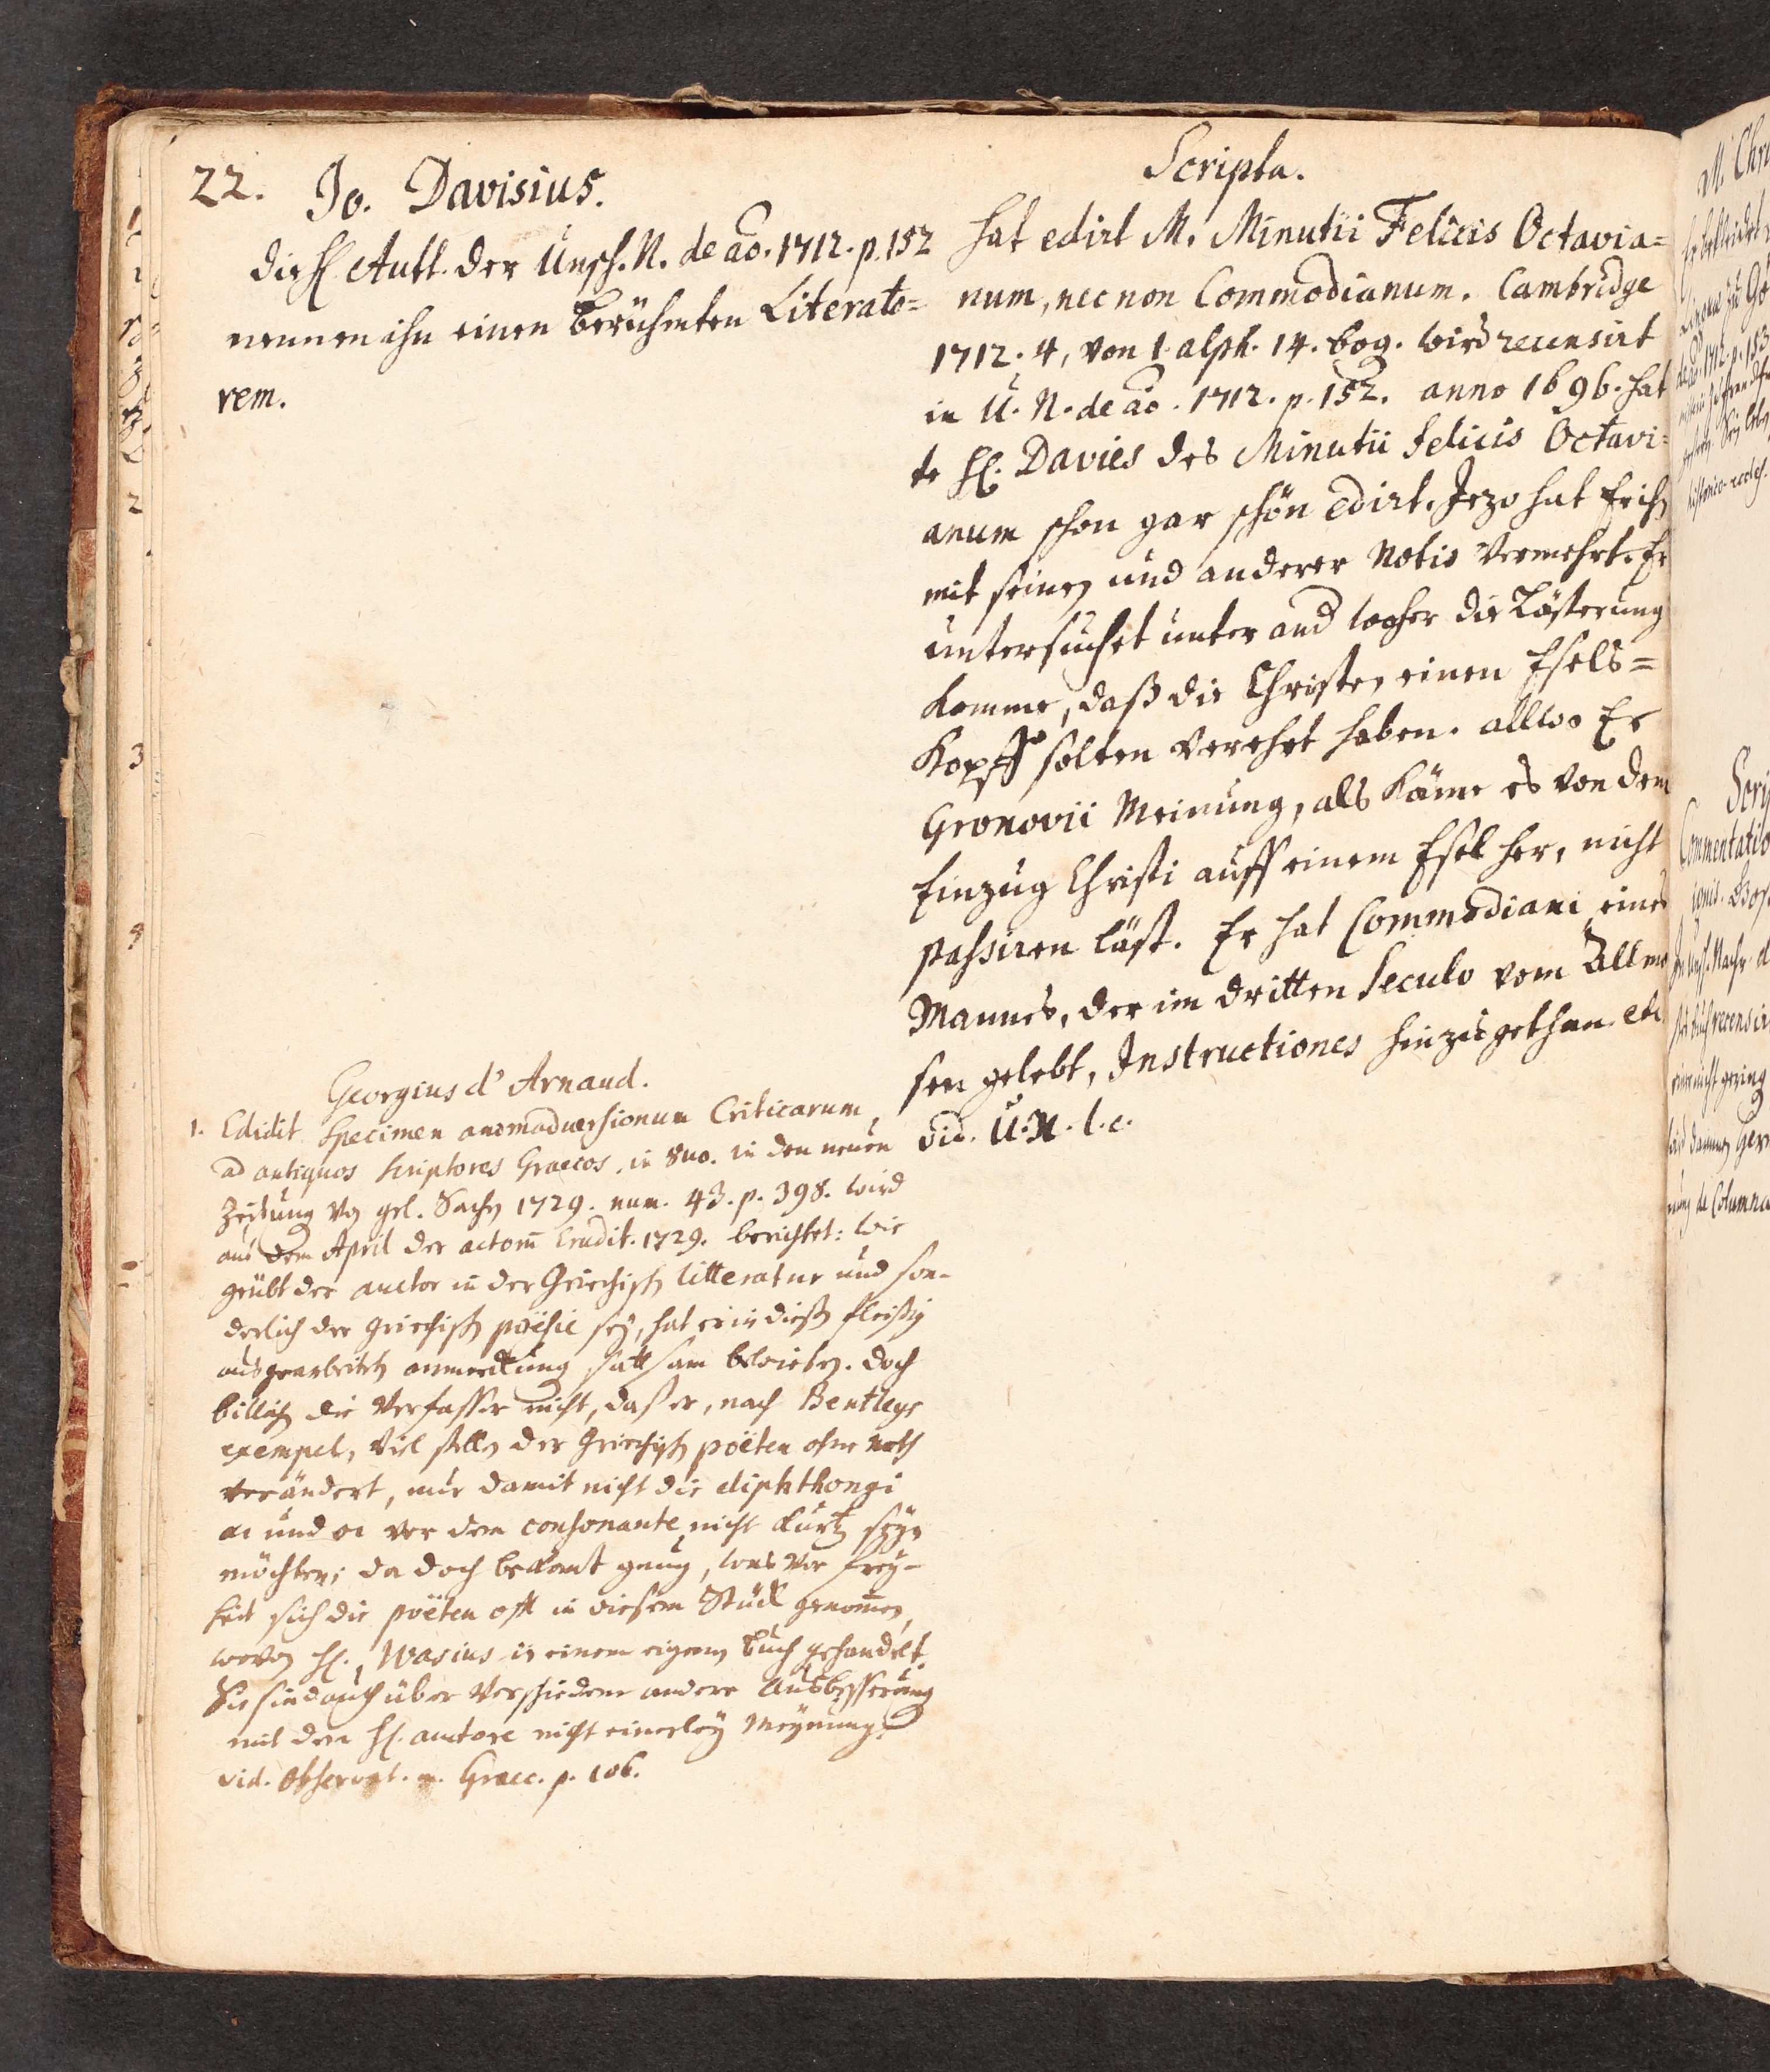 22. Jo. Davisius.
die H. Autt. der Unsch. N. de ao. 1712. p. 152
nennen ihn einen berühmten Literato=
rem.
Scripta.
hat edirt M. Minutii Felicis Octavia=
num, nec non Commodianum. Cambridge
1712. 4, von 1. alph. 14. bog. wird recensirt
in U. N. de ao. 1712. p. 152. anno 1696. hat
te H. Davies des Minutii Felicis Octavi=
anum schon gar schön edirt. Jezo hat Er ihn
mit seinen und anderer Notis vermehrt. Er
untersuchet unter and woher die Lästerung
komme, daß die Christen einen Esels=
Kopff solten verehrt haben. allwo Er
Gronovii Meinung, als käme es von dem
Einzug Christi auff einem Esel her, nicht
passiren läst. Er hat Commodiani eines
Mannes, der im dritten Seculo vom
sen gelebt, Instructiones hinzu gethan etc
vid. U. N. l. c.
Georgius d' Arnaud.
1. Edidit Specimen animadversionum Criticarum
ad antiquos scriptores Graecos, in 8vo. in den neuen
Zeitung von gel. Sachen 1729. num. 43. p. 398. wird
aus dem April der actorum Erudit. 1729. berichtet: wie
geübt der auctor in der Griechischen litteratur und son-
derlich der griechischen poësie sey, hat er in diesen fleißig
ausgearbeiteten anmerkung sattsam bewiesen. doch
billichen die Verfasser nicht, daß er, nach Bentleys
exempel, viel stellen der Griechischen poëten ohne noth
verändert, nur damit nicht die diphthongi
ai und oi vor dem consonante nicht kurtz seyn
möchten; da doch bekant genug, was vor frey-
heit sich die poëten oft in diesem Stück genommen,
wovon H. Wasius in einem eigenen buch gehandelt.
Sie sind auch über verschiedene andere Ausbesserung
mit dem H. autore nicht einerley Meynung.
vid. Observat. m. Graec. p. 106.